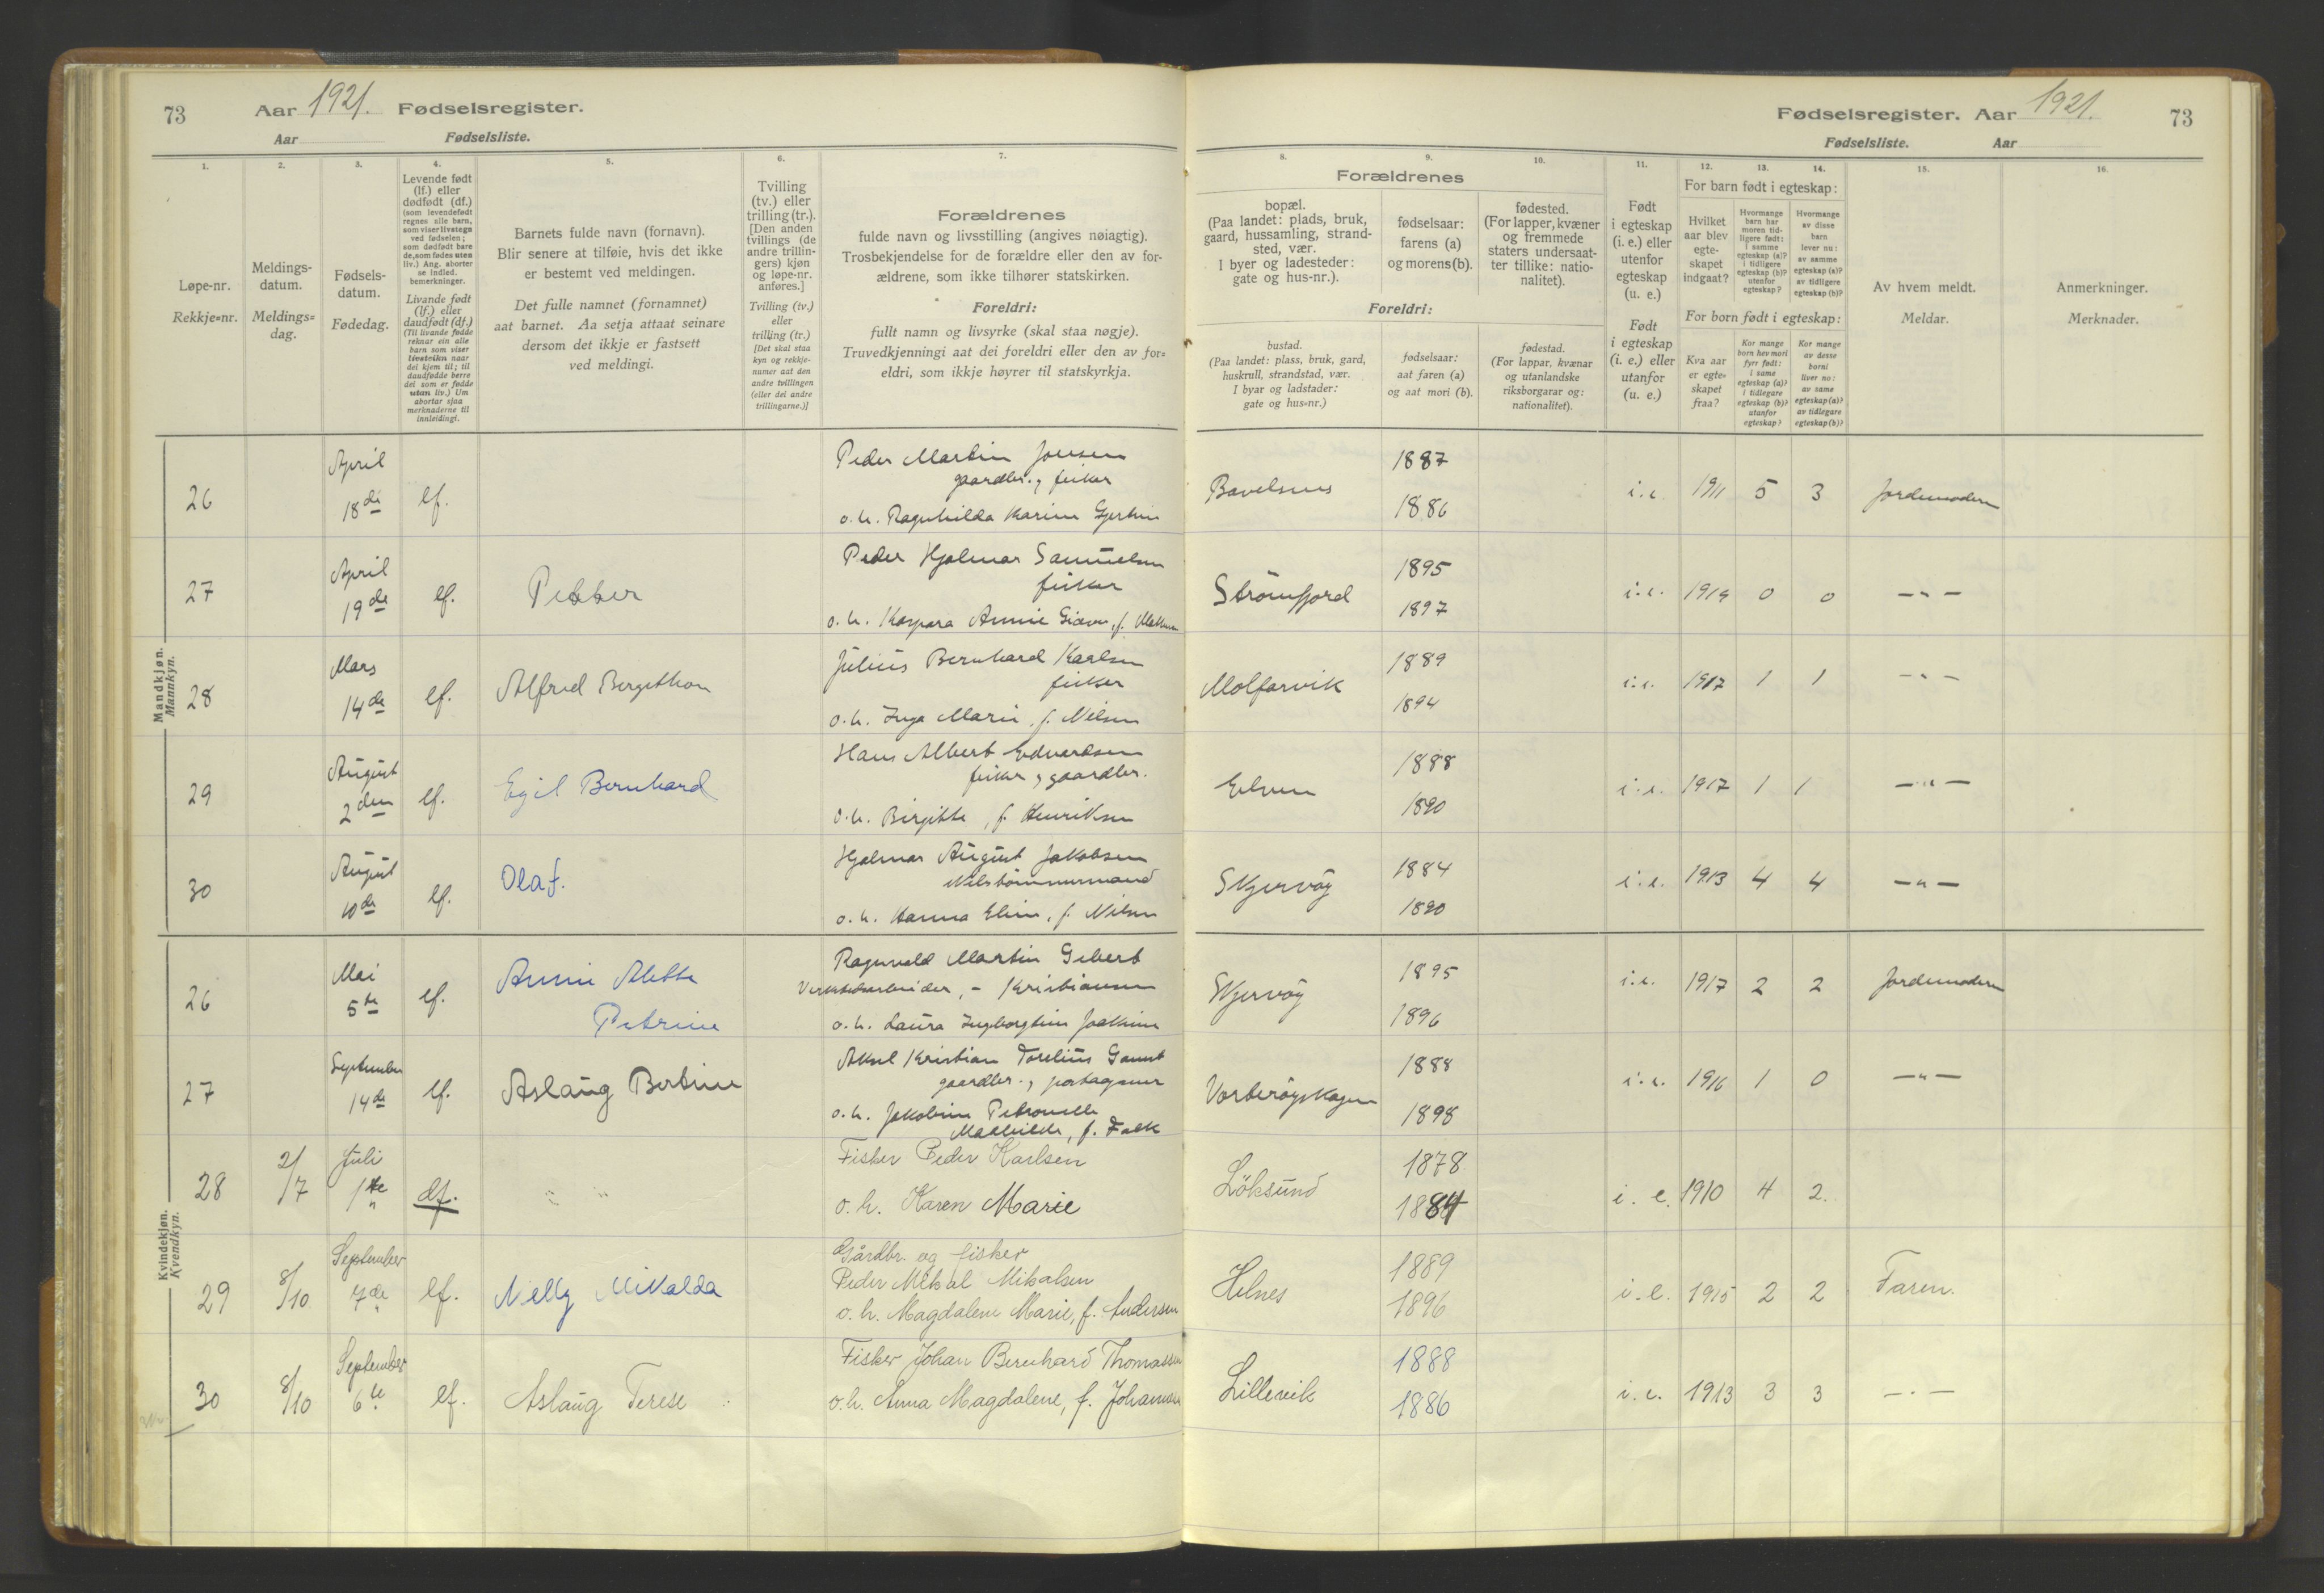 73 Aar 1921. Fødselsregister.
Aar Fødselsliste.
1. 2. 3. 4. 5. 6. 7.
Løpe-nr.
Rekkje=nr.
Meldings-
datum.
Meldings=
dag.
Fødsels-
datum.
Fødedag.
Levende født
(lf.) eller
dødfødt (df.)
(som levendefødt
regnes alle barn,
som viser livstegn
ved fødselen;
som dødfødt bare
de, som fødes uten
liv.) Ang. aborter
se indled.
bemerkninger.
Livande født
(lf.) eller
daudfødt (df.)
(Til livande fødde
reknar ein alle
barn som viser
livsteikn naar
dei kjem til; til
daudfødde berre
dei som er fødde
utan liv.) Um
abortar sjaa
merknaderne til
innleidingi.
Barnets fulde navn (fornavn).
Blir senere at tilføie, hvis det ikke
er bestemt ved meldingen.
Det fulle namnet (fornamnet)
aat barnet. Aa setja attaat seinare
dersom det ikkje er fastsett
ved meldingi.
Tvilling
(tv.) eller
trilling (tr.).
[Den anden
tvillings (de
andre trillin-
gers) kjøn
og løpe-nr.
anføres.]
Tvilling (tv.)
eller
trilling (tr.)
[Det skal staa
kyn og rekkje-
numer aat den
andre tvillingen
(eller dei andre
trillingarne.)]
Forældrenes
fulde navn og livsstilling (angives nøiagtig).
Trosbekjendelse for de forældre eller den av for-
ældrene, som ikke tilhører statskirken.
Foreldri:
fullt namn og livsyrke (skal staa nøgje).
Truvedkjenningi aat dei foreldri eller den av for=
eldri, som ikkje høyrer til statskyrkja.
Fødselsregister. Aar 1921. 73
Fødselsliste. Aar
8. 9. 10. 11. 12. 13. 14. 15. 16.
Forældrenes
bopæl.
(Paa landet: plads, bruk,
gaard, hussamling, strand-
sted, vær.
I byer og ladesteder:
gate og hus-nr.).
fødselsaar:
farens (a)
og morens (b).
fødested.
(For lapper, kvæner
og fremmede
staters undersaat-
ter tillike: natio-
nalitet).
Foreldri:
bustad.
(Paa landet: plass, bruk, gard,
huskrull, strandstad, vær.
I byar og ladstader:
gate og hus=nr.)
fødselsaar:
aat faren (a)
og aat mori (b).
fødestad.
(For lappar, kvænar
og utanlandske
riksborgarar og:
nationalitet).
Født
i egteskap
(i. e.) eller
utenfor
egteskap
(u. e.)
Født
i egteskap
(i. e.) eller
utanfor
(u. e.)
For barn født i egteskap:
Hvilket
aar blev
egte-
skapet
indgaat?
Hvormange
barn har
moren tid-
ligere født:
i samme
egteskap (a)?
i tidligere
egteskap (b)?
utenfor
egteskap?
Hvormange
av disse
barn
lever nu:
av samme
egteskap (a)?
av tidligere
egteskap (b)?
For born født i egteskap:
Kva aar
er egte-
skapet
fraa?
Kor mange
born hev mori
fyrr født:
i same
egteskap (a)?
i tidlegare
egteskap (b)?
utanfor
egteskap?
Kor mange
av desse
borni
liver no:
av same
egteskap (a)?
av tidlegare
egteskap (b)?
Av hvem meldt.
Meldar.
Anmerkninger.
Merknader.
Mandkjøn.
Mannkyn.
26 April 18de lf. Peder Martin Jensen
gaardbr., fisker
o. h. Ragnhilda Karine Gjertsen
1887 1886 i.e. 1911 5 3 Jordemoderen
27 April 19de lf. Petter Peder Hjalmar Samuelsen
fisker
o. h. Kaspara Annie
Strömfjord 1895 1897 i.e. 0 0 — " —
28 Mars 14de lf. Alfred Bergithon Julius Bernhard Karlsen
fisker
o. h. Inga Marie, f. Nilsen
Molfarvik 1889 1894 i.e. 1917 1 1 — " —
29 August 2den lf. Egil Bernhard Hans Albert Edvardsen
fisker, gaardbr.
o. h. Birgitte, f. Henriksen
Elven 1888 1890 i.e. 1917 1 1 — " —
30 August 10de lf. Olaf. Hjalmar August Jakobsen
o. h. Hanna Eline, f. Nilsen
Skjervöy 1884 1890 i.e. 1913 4 4 — " —
Kvindekjøn.
Kvendkyn.
26 Mai 5te lf. Annie Aletta
Petrine
Ragnvald Martin Gebert
Verkstedarbeider, - Kristiansen
o. h. Laura
Skjervöy 1895 1896 i.e. 1917 2 2 Jordemoderen
27 September 14de lf. Aslaug Bertine Aksel Kristian
gaardbr.,
o. h. Jakobine Petronelle
Mathilde, f. Falk
1888 1898 i.e. 1916 1 0 — " —
28 2/7 Juli 1ste df. " " Fisker Peder Karlsen
o. h. Karen Marie
Löksund 1878 1884 i. e. 1910 4 2.
29 8/10 September 7de lf. Nelly Mikalda Gårdbr. og fisker
Peder Mikal Mikalsen
o. h. Magdalene Marie, f. Andersen
Helnes 1889 1896 i.e. 1915 2 2 Faren.
30 8/10 September 6te lf. Aslaug Terese Fisker Johan Bernhard Thomassen
o. h. Anna Magdalene, f. Johansen
Lillevik 1888 1886 i.e. 1913 3 3 — " —